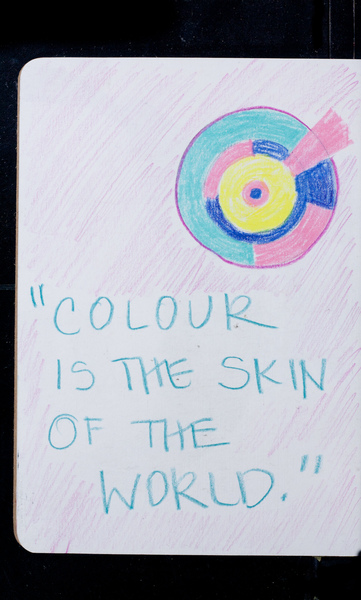 "COLOUR
IS THE SKIN
OF THE
WORLD."